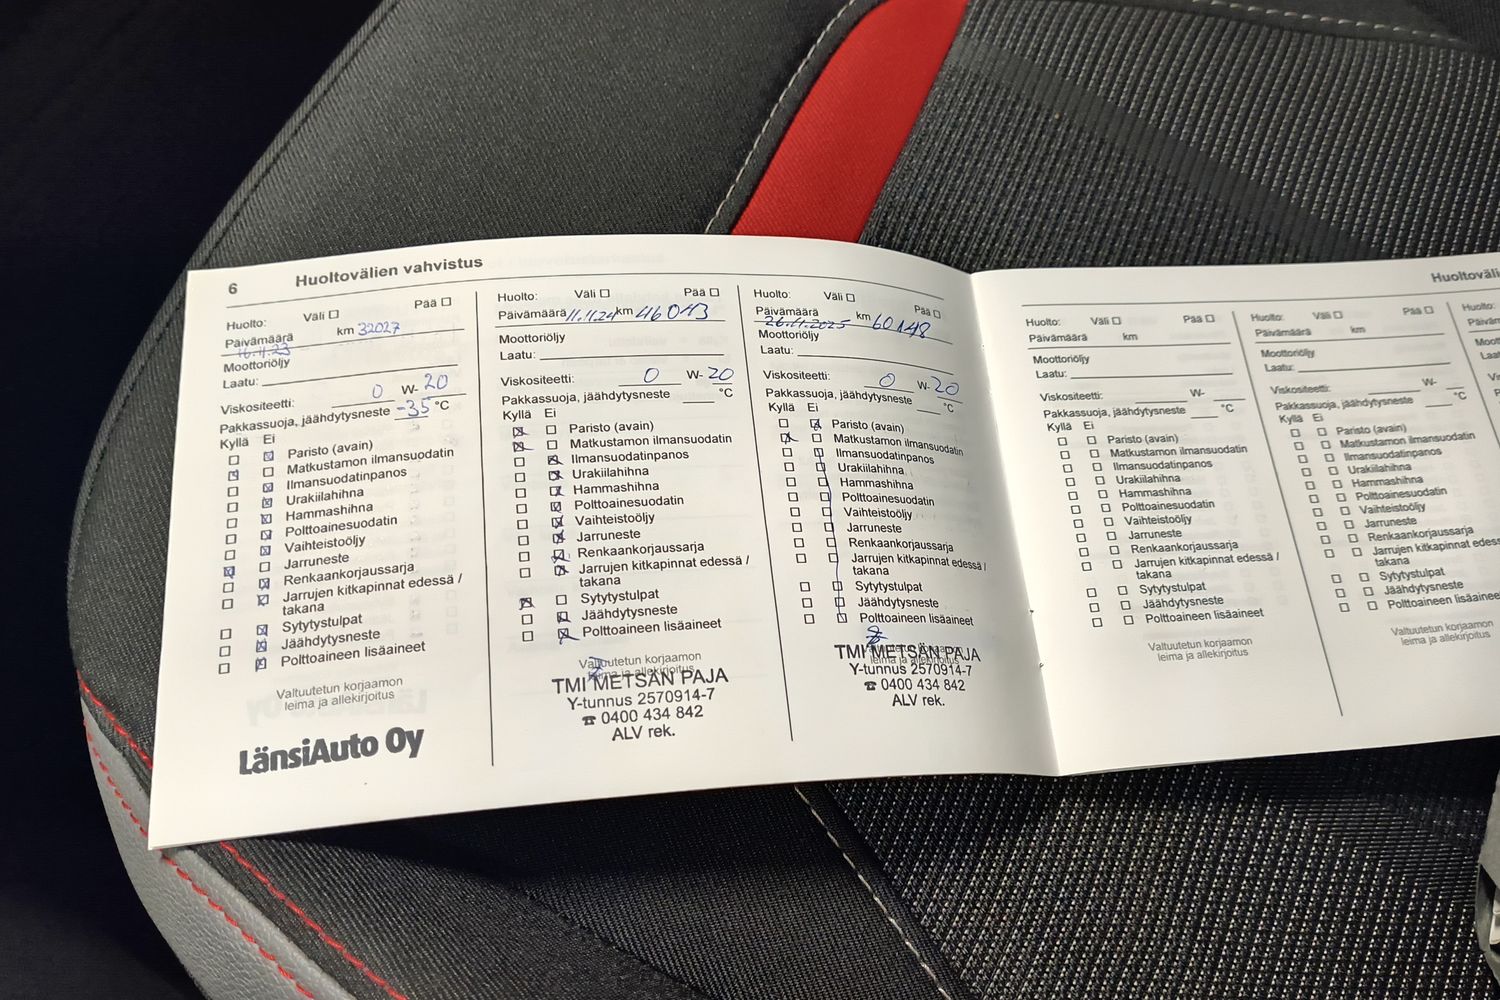 6 Huoltovälien vahvistus
Huolto: Väli Pää
Päivämäärä km 32027
16.11.23
Moottoriöljy
Laatu:
Viskositeetti: 0 W- 20
Pakkassuoja, jäähdytysneste -35 °C
Kyllä Ei
Paristo (avain)
Matkustamon ilmansuodatin
Ilmansuodatinpanos
Urakiilahihna
Hammashihna
Polttoainesuodatin
Vaihteistoöljy
Jarruneste
Renkaankorjaussarja
Jarrujen kitkapinnat edessä /
takana
Sytytystulpat
Jäähdytysneste
Polttoaineen lisäaineet
Valtuutetun korjaamon
leima ja allekirjoitus
LänsiAuto Oy
Huolto: Väli Pää
Päivämäärä 11.11.24 km 46013
Moottoriöljy
Laatu:
Viskositeetti: 0 W- 20
Pakkassuoja, jäähdytysneste °C
Kyllä Ei
Paristo (avain)
Matkustamon ilmansuodatin
Ilmansuodatinpanos
Urakiilahihna
Hammashihna
Polttoainesuodatin
Vaihteistoöljy
Jarruneste
Renkaankorjaussarja
Jarrujen kitkapinnat edessä /
takana
Sytytystulpat
Jäähdytysneste
Polttoaineen lisäaineet
Valtuutetun korjaamon
leima ja allekirjoitus
TMI METSÄN PAJA
Y-tunnus 2570914-7
☎ 0400 434 842
ALV rek.
Huolto: Väli Pää
Päivämäärä km 60148
26.11.2025
Moottoriöljy
Laatu:
Viskositeetti: 0 W- 20
Pakkassuoja, jäähdytysneste °C
Kyllä Ei
Paristo (avain)
Matkustamon ilmansuodatin
Ilmansuodatinpanos
Urakiilahihna
Hammashihna
Polttoainesuodatin
Vaihteistoöljy
Jarruneste
Renkaankorjaussarja
Jarrujen kitkapinnat edessä /
takana
Sytytystulpat
Jäähdytysneste
Polttoaineen lisäaineet
leima ja allekirjoitus
TMI METSÄN PAJA
Y-tunnus 2570914-7
☎ 0400 434 842
ALV rek.
Huoltoväli
Huolto: Väli Pää
Päivämäärä km
Moottoriöljy
Laatu:
Viskositeetti: W-
Pakkassuoja, jäähdytysneste °C
Kyllä Ei
Paristo (avain)
Matkustamon ilmansuodatin
Ilmansuodatinpanos
Urakiilahihna
Hammashihna
Polttoainesuodatin
Vaihteistoöljy
Jarruneste
Renkaankorjaussarja
Jarrujen kitkapinnat edessä /
takana
Sytytystulpat
Jäähdytysneste
Polttoaineen lisäaineet
Valtuutetun korjaamon
leima ja allekirjoitus
Huolto: Väli Pää
Päivämäärä km
Moottoriöljy
Laatu:
Viskositeetti: W-
Pakkassuoja, jäähdytysneste °C
Kyllä Ei
Paristo (avain)
Matkustamon ilmansuodatin
Ilmansuodatinpanos
Urakiilahihna
Hammashihna
Polttoainesuodatin
Vaihteistoöljy
Jarruneste
Renkaankorjaussarja
Jarrujen kitkapinnat edess
takana
Sytytystulpat
Jäähdytysneste
Polttoaineen lisäainee
Valtuutetun korjaamon
leima ja allekirjoitus
Huolto:
Päiväm
Mooto
Laatu
Visko
Pakk
Kyllä